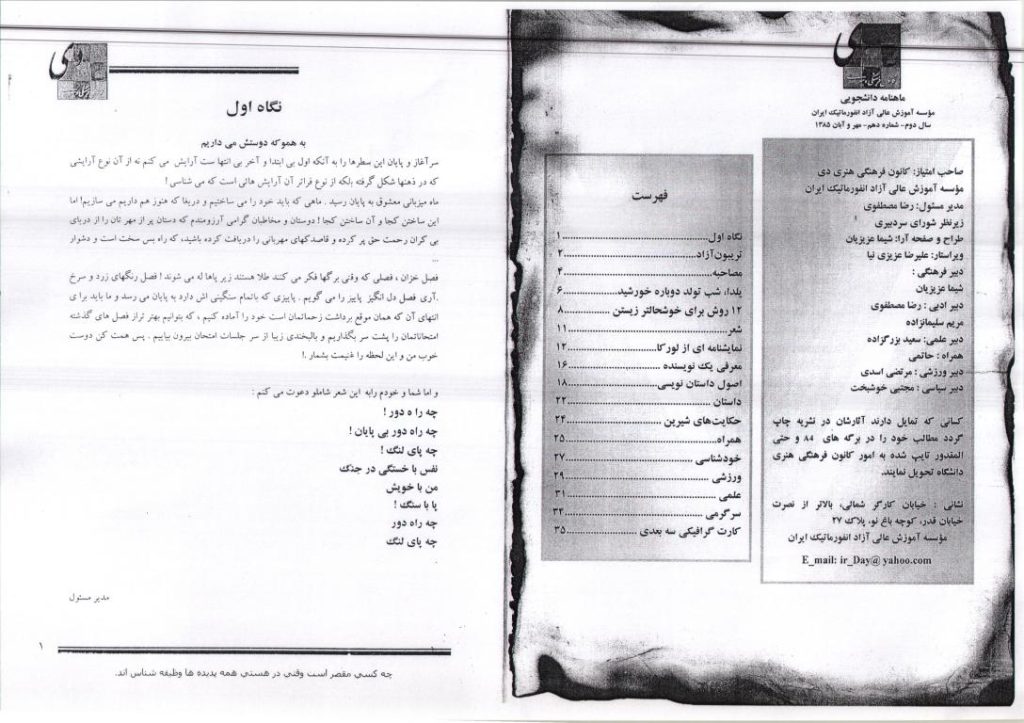 ماهنامه دانشجویی
مؤسسه آموزش عالی آزاد انفورماتیک ایران
سال دوم- شماره دهم- مهر و آبان ۱۳۸۵
صاحب امتیاز: کانون فرهنگی هنری دی
مؤسسه آموزش عالی آزاد انفورماتیک ایران
مدیر مسئول: رضا مصطفوی
زیرنظر شورای سردبیری
طراح و صفحه آرا: شیما عزیزیان
ویراستار: علیرضا عزیزی نیا
دبیر فرهنگی :
شیما عزیزیان
دبیر ادبی : رضا مصطفوی
مریم سلیمانزاده
دبیر علمی: سعید بزرگزاده
همراه : حاتمی
دبیر ورزشی : مرتضی اسدی
دبیر سیاسی : مجتبی خوشبخت
کسانی که تمایل دارند آثارشان در نشریه چاپ
گردد مطالب خود را در برگه های ۸۴ و حتی
المقدور تایپ شده به امور کانون فرهنگی هنری
دانشگاه تحویل نمایند.
نشانی : خیابان کارگر شمالی، بالاتر از نصرت
خیابان قدر، کوچه باغ نو، پلاک ۲۷
مؤسسه آموزش عالی آزاد انفورماتیک ایران
E_mail: ir_Day@ yahoo.com
فهرست
نگاه اول..........۱
تریبون آزاد..........۲
مصاحبه..........۴
یلدا، شب تولد دوباره خورشید..........۶
۱۲ روش برای خوشحالتر زیستن ..........۸
شعر..........۱۱
نمایشنامه ای از لورکا ..........۱۲
معرفی یک نویسنده ..........۱۶
اصول داستان نویسی..........۱۸
داستان ..........۲۲
حکایت‌های شیرین ..........۲۴
همراه..........۲۵
خودشناسی ..........۲۷
ورزشی ..........۲۹
علمی ..........۳۱
سرگرمی ..........۳۴
کارت گرافیکی سه بعدی ..........۳۵
نگاه اول
به هموکه دوستش می داریم
سرآغاز و پایان این سطرها را به آنکه اول بی ابتدا و آخر بی انتها ست آرایش می کنم نه از آن نوع آرایشی
که در ذهنها شکل گرفته بلکه از نوع فراتر آن آرایش هائی است که می شناسی !
ماه میزبانی معشوق به پایان رسید . ماهی که باید خود را می ساختیم و دریغا که هنوز هم داریم می سازیم! اما
این ساختن کجا و آن ساختن کجا ! دوستان و مخاطبان گرامی آرزومندم که دستان پر از مهر تان را از دریای
بی کران رحمت حق پر کرده و قاصدکهای مهربانی را دریافت کرده باشید، که راه بس سخت است و دشوار
...
فصل خزان ، فصلی که وقتی برگها فکر می کنند طلا هستند زیر پاها له می شوند ! فصل رنگهای زرد و سرخ
.آری فصل دل انگیز پاییز را می گویم . پاییزی که باتمام سنگینی اش دارد به پایان می رسد و ما باید برا ی
انتهای آن که همان موقع برداشت زحماتمان است خود را آماده کنیم ، که بتوانیم بهتر تراز فصل های گذشته
امتحاناتمان را پشت سر بگذاریم و بالبخندی زیبا از سر جلسات امتحان بیرون بیاییم . پس همت کن دوست
خوب من و این لحظه را غنیمت بشمار .!
و اما شما و خودم رابه این شعر شاملو دعوت می کنم :
چه را ه دور !
چه راه دور بی پایان !
چه پای لنگ !
نفس با خستگی در جنگ
من با خویش
پا با سنگ !
چه راه دور
چه پای لنگ
مدیر مسئول
۱
چه کسی مقصر است وقتی در هستی همه پدیده ها وظیفه شناس اند.